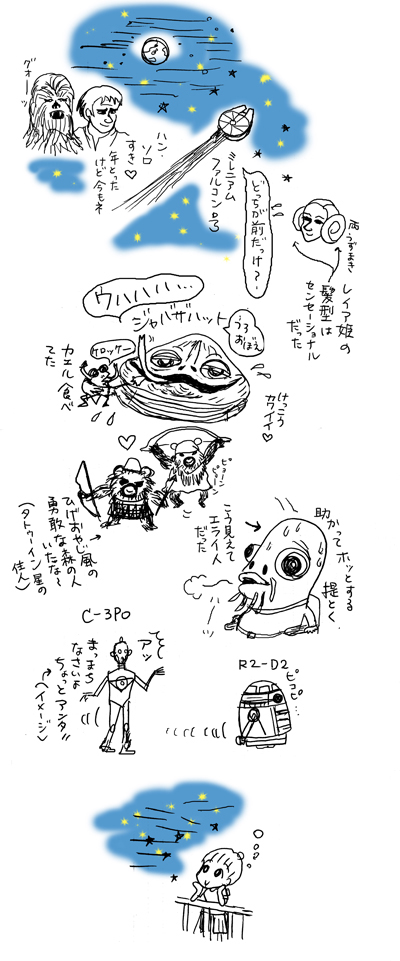 グオーッ
ハン・
ソロ
すき♡
年とった
けど今もネ
ミレニアム
ファルコン号
どっちが前だっけ?・
両うずまき
レイア姫の
髪型は
センセーショナル
だった
ウハハハ・・・
ジャバザハット
うろ
おぼえ
ケロッケー
カエル食べ
てた
けっこう
カワイイ♡
ピョーン
ピョーン
ひげおやじ風の
勇敢な森の人
いたな〜
(タトゥーイン星の
住人)
こう見えて
エライ人
だった
助かって
ホッとする
提とく
C-3PO
アッ
まっまち
なさいよ
ちょっとアンタ!!
(イメージ)
R2-D2
ピコピ…